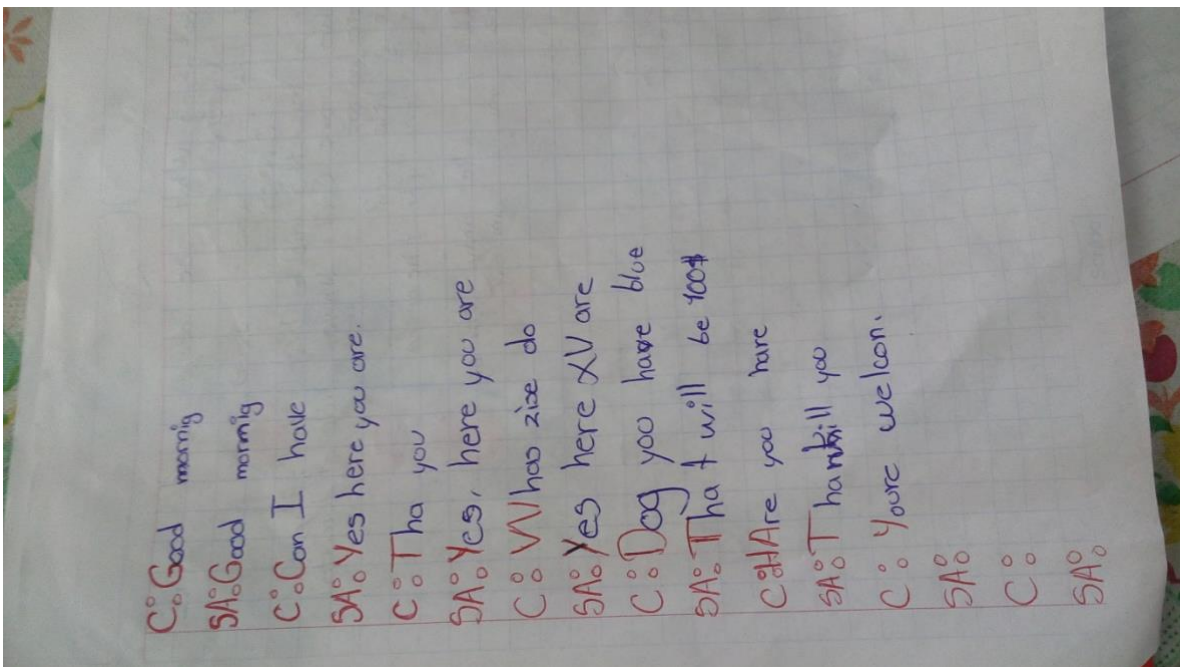 C: Good mornig
SA: Good mornig
C: Can I have
SA: Yes here you are.
C: Tha you
SA: Yes, here you are
C: Whas zize do
SA: Yes here XV are
C: Dog you have blue
SA: That will be 100$
C: HAre you have
SA: Thankill you
C: Youre welcon.
SA:
C:
SA: